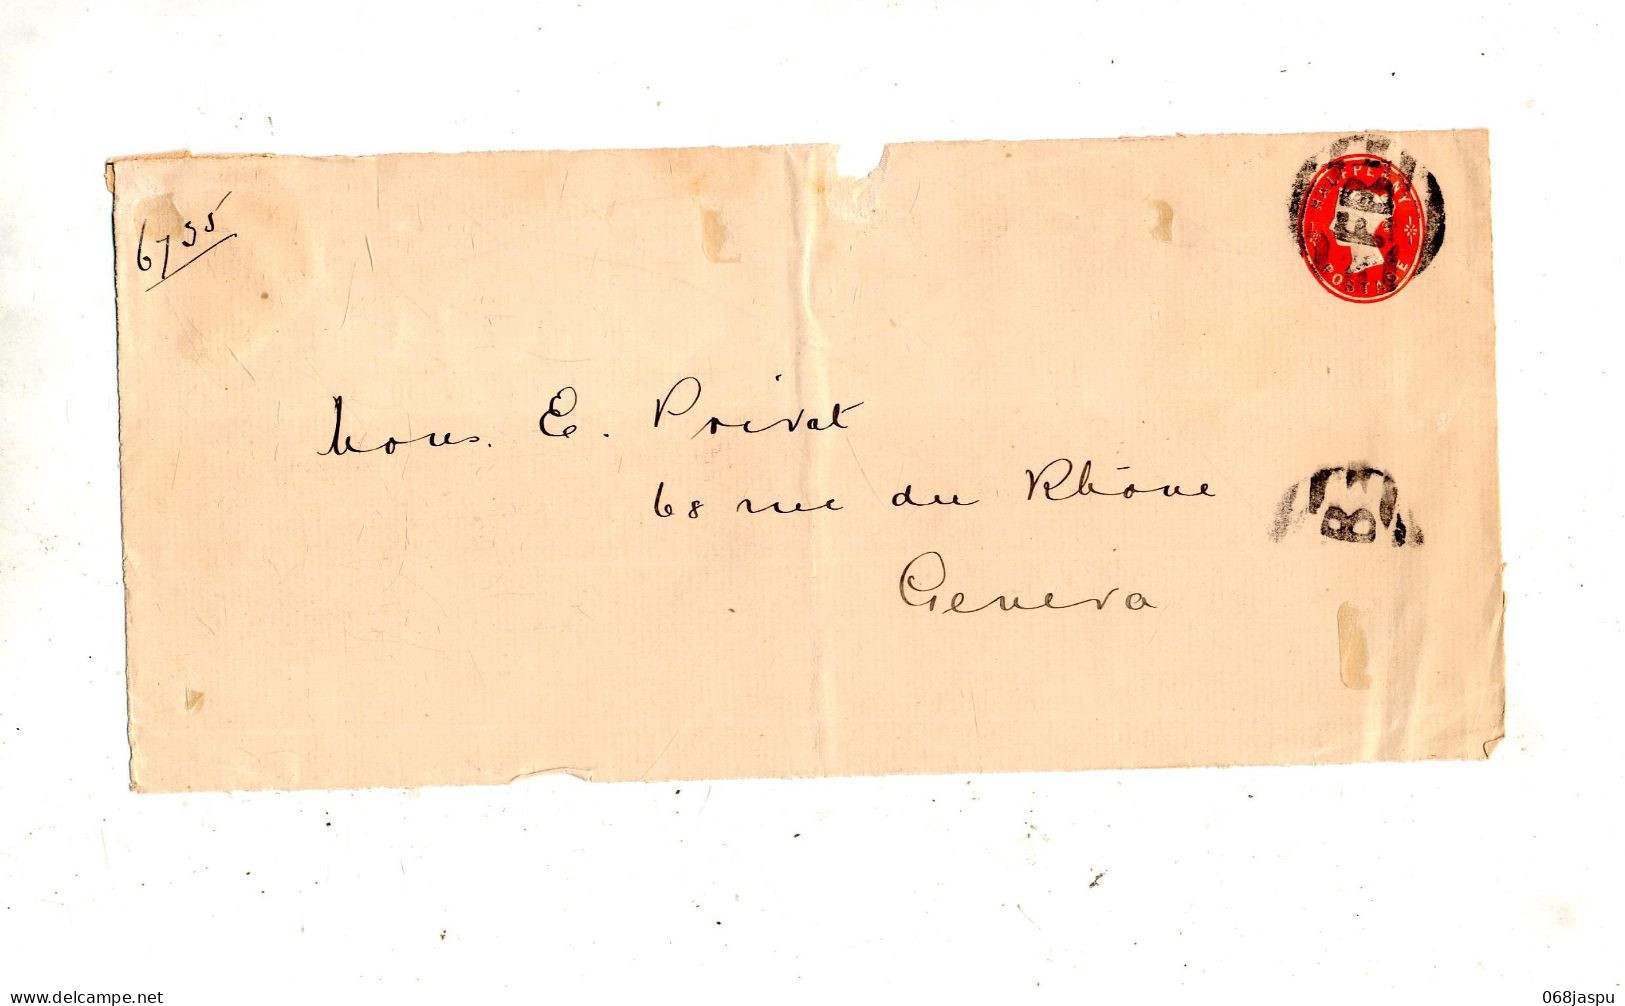 6755
HALFPENNY
POSTAGE
Mons. E. Privat
68 rue du Rhône
Geneva
B
delcampe.net
068jaspu